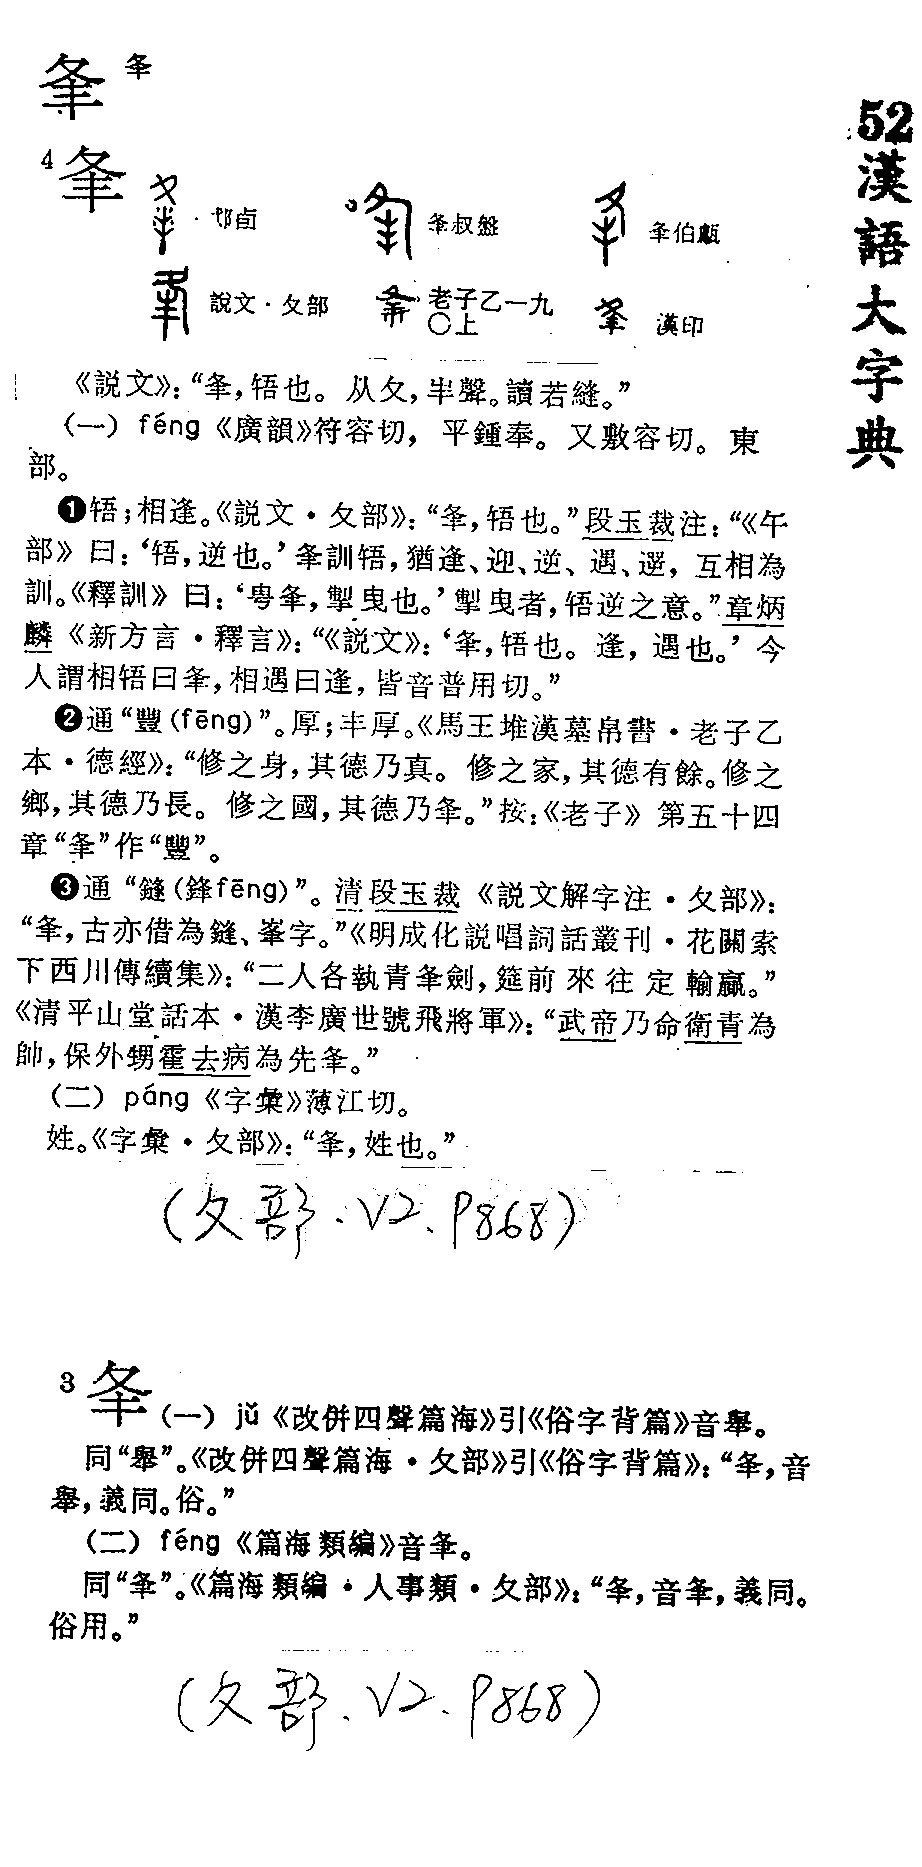 夆 夅
4 夆
邛卣 夆叔盤 夆伯甗
說文·夊部 老子乙一九〇上 漢印
《説文》：“夆，啎也。从夊，半聲。讀若縫。”
（一）féng《廣韻》符容切，平鍾奉。又敷容切。東
部。
❶牾；相逢。《説文·夊部》：“夆，牾也。”段玉裁注：“《午
部》曰：‘牾，逆也。’夆訓牾，猶逢、迎、逆、遇、遻，互相為
訓。《釋訓》曰：‘甹夆，掣曳也。’掣曳者，牾逆之意。”章炳
麟《新方言·釋言》：“《説文》：‘夆，牾也。逢，遇也。’今
人謂相牾曰夆，相遇曰逢，皆音普用切。”
❷通“豐(fēng)”。厚；丰厚。《馬王堆漢墓帛書·老子乙
本·德經》：“修之身，其德乃真。修之家，其德有餘。修之
鄉，其德乃長。修之國，其德乃夆。”按：《老子》第五十四
章“夆”作“豐”。
❸通“鏠(鋒fēng)”。清段玉裁《説文解字注·夊部》：
“夆，古亦借為鏠、峯字。”《明成化説唱詞話叢刊·花關索
下西川傳續集》：“二人各執青夆劍，筵前來往定輸贏。”
《清平山堂話本·漢李廣世號飛將軍》：“武帝乃命衛青為
帥，保外甥霍去病為先夆。”
（二）páng《字彙》薄江切。
姓。《字彙·夊部》：“夆，姓也。”
（夊部．V2．P868）
3 夅
（一）jǔ《改併四聲篇海》引《俗字背篇》音舉。
同“舉”。《改併四聲篇海·夊部》引《俗字背篇》：“夅，音
舉，義同。俗。”
（二）féng《篇海類編》音夆。
同“夆”。《篇海類編·人事類·夊部》：“夅，音夆，義同。
俗用。”
（夊部．V2．P868）
52漢語大字典